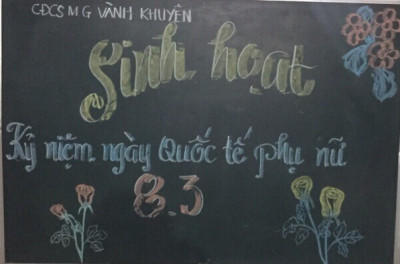 CĐCS MG VÀNH KHUYÊN
Sinh hoạt
Kỷ niệm ngày Quốc tế phụ nữ
8.3